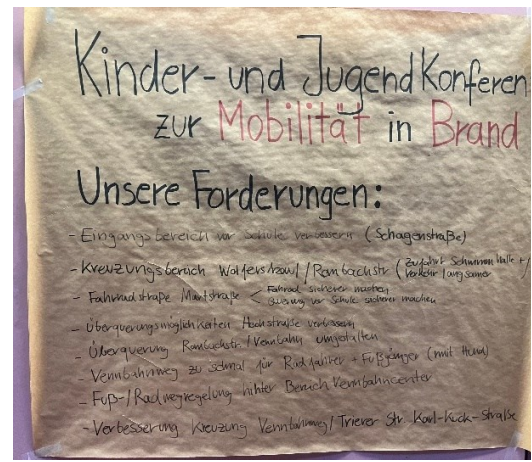 Kinder- und Jugendkonferen
zur Mobilität in Brand
Unsere Forderungen:
- Eingangsbereich vor Schule verbessern (Schagenstraße)
- Kreuzungsbereich Wolferskaul/Rombachstr (Zufahrt Schwimmhalle +
Verkehr langsamer
- Fahrradstraße Marktstraße < Fahrrad sicherer machen
vor Schule sicherer machen
- Überquerungsmöglichkeiten Hochstraße verbessern
- Überquerung Rombachstr./Vennbahn umgestalten
- Vennbahnweg zu schmal für Radfahrer + Fußgänger (mit Hund)
- Fuß-/Radwegregelung hinter Bereich Vennbahncenter
- Verbesserung Kreuzung Vennbahnweg/Trierer Str. Karl-Kuck-Straße